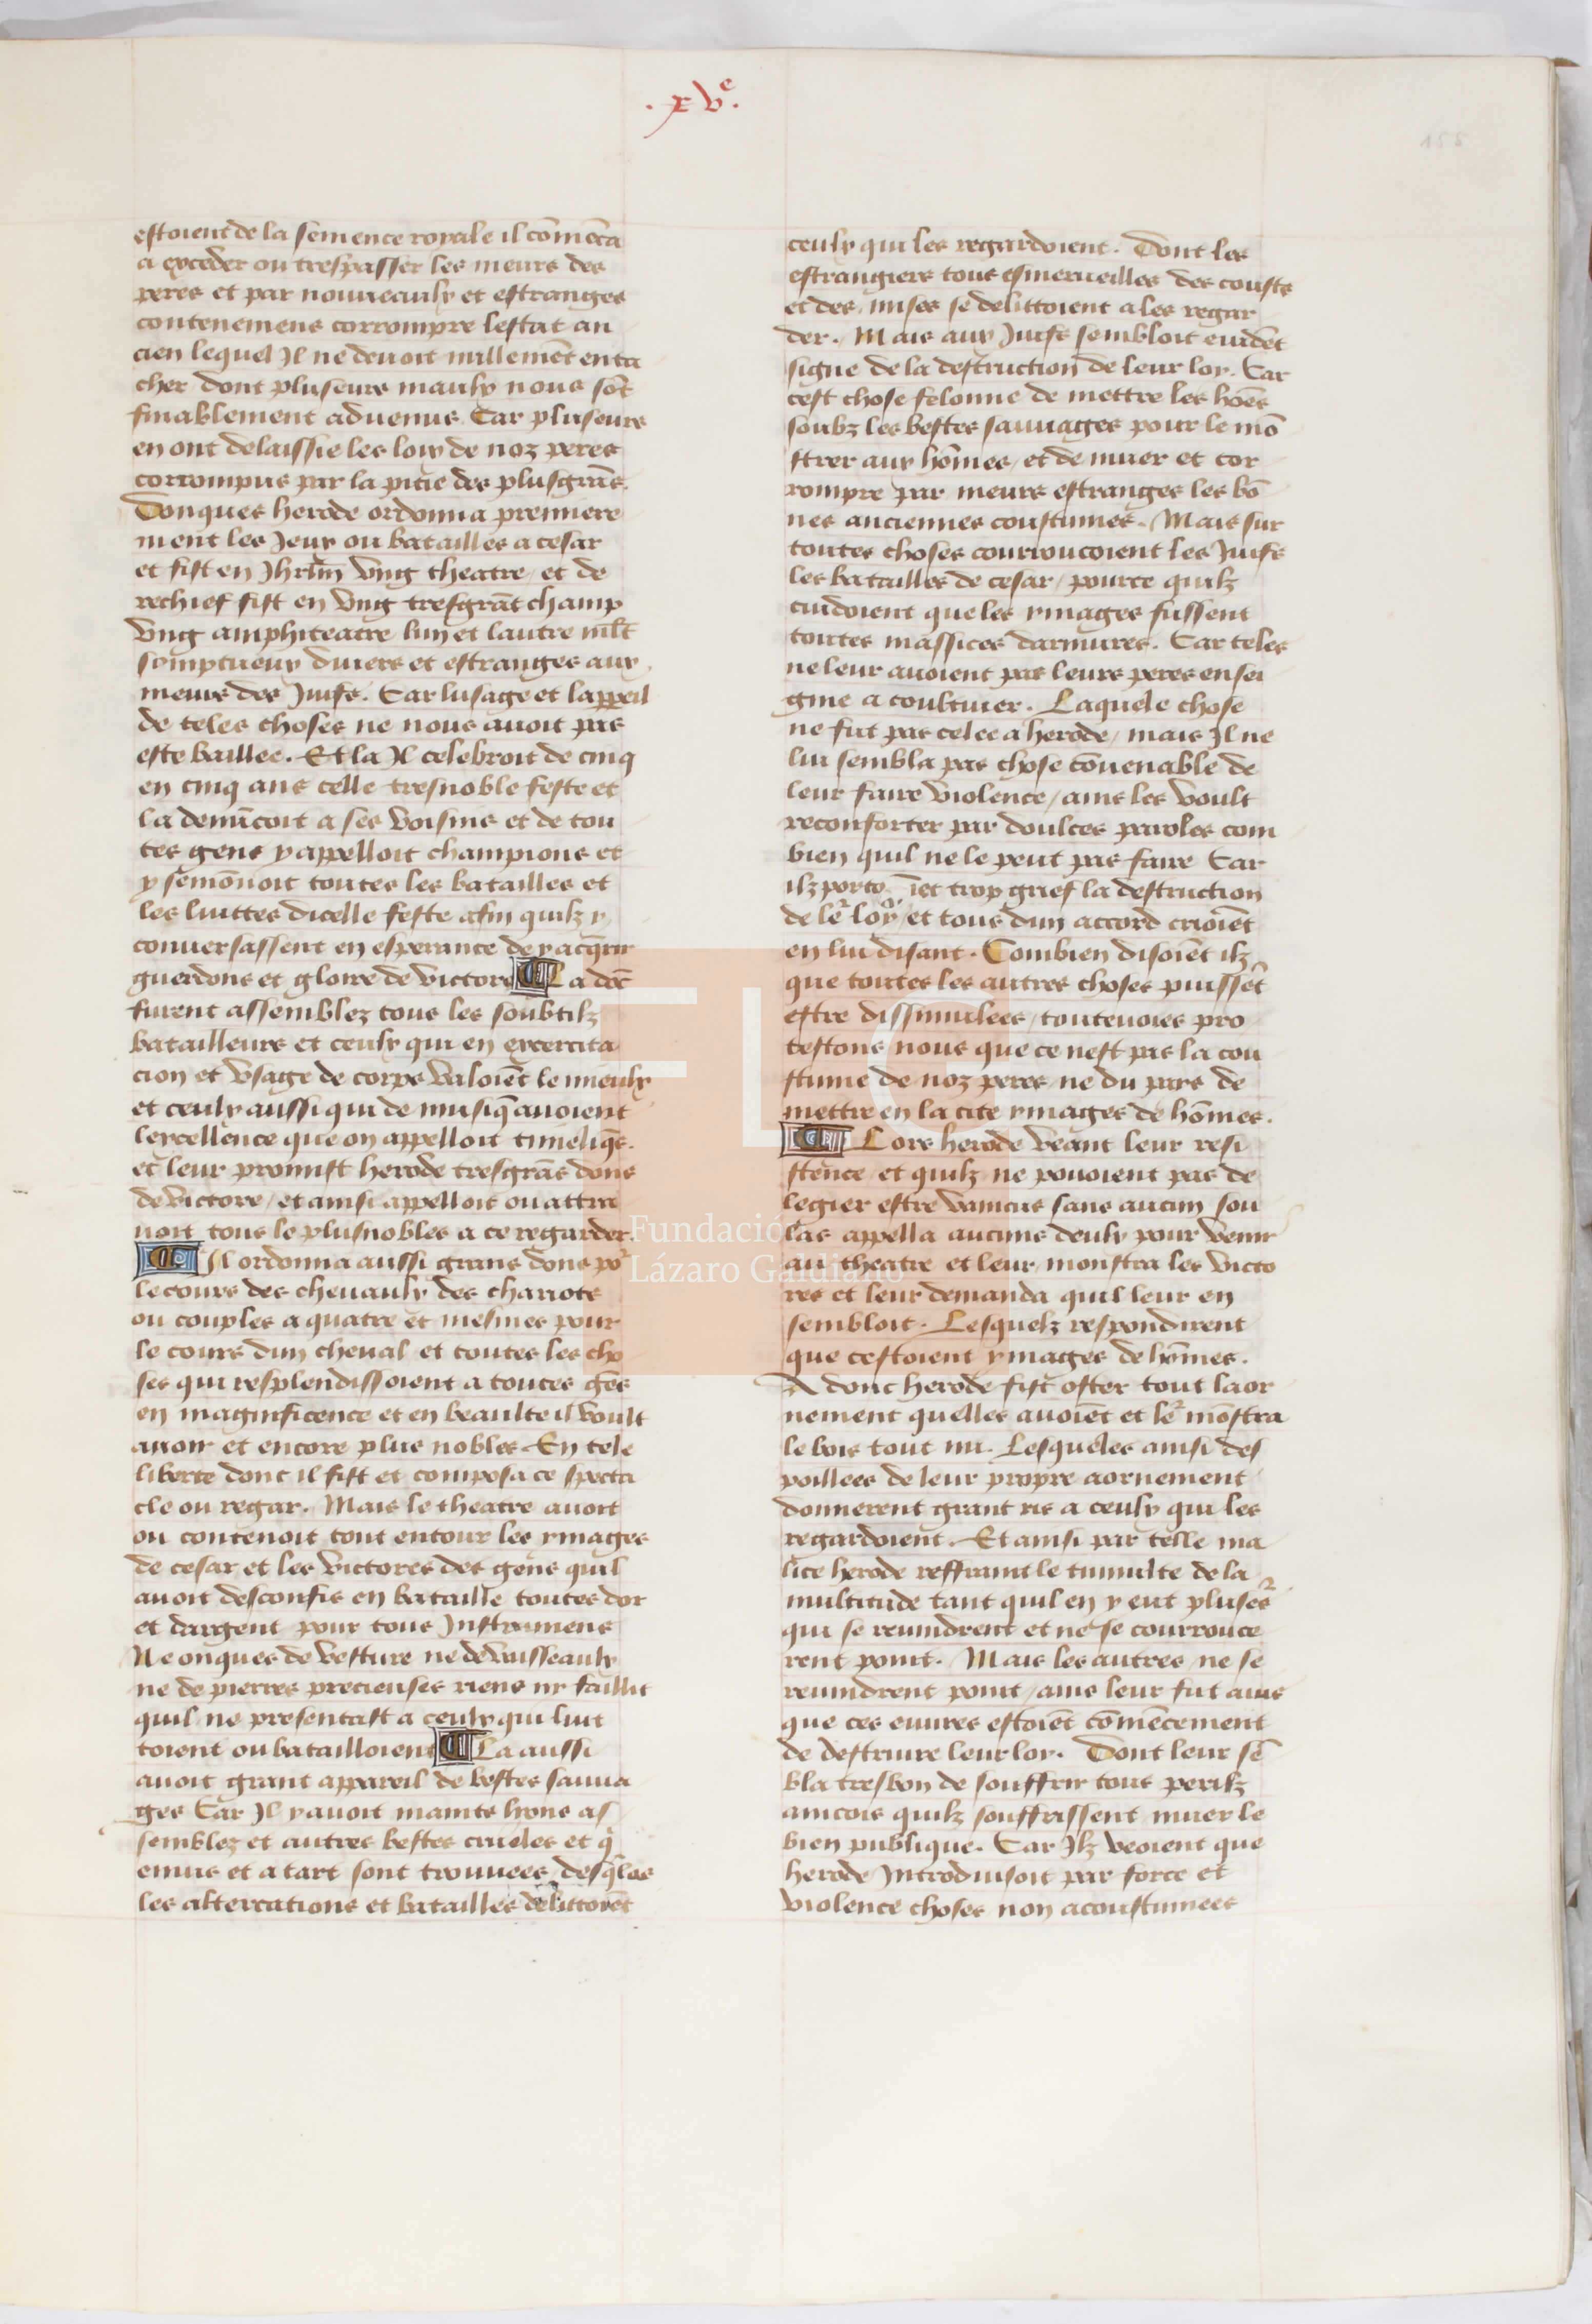 . xv.e
estoient de la semence royale il cōmēca
a exceder ou trespasser les meurs des
peres et par nouueaulx et estranges
contenemens corrompre lestat an
cien lequel Il ne deuoit nullemēt enta
cher dont pluseurs maulx nous sōt
finablement aduenus Car pluseurs
en ont delaissie les loix de noz peres
corrompus par la pitie des plusgrās.
Donques herode ordonna premiere
ment les Jeux ou batailles a cesar
et fist en Jhrlm̄ vng theatre / et de
rechief fist en vng tresgrāt champ
vng amphiteatre lun et lautre mlt̄
sumptueux diuers et estranges aux
meurs des Juifs. Car lusage et lappeil
de teles choses ne nous auoit pas
este baillee. Et la Il celebroit de cinq
en cinq ans celle tresnoble feste et
la denūcoit a ses voisins et de tou
tes gens y appelloit champions et
y semōnoit toutes les batailles et
les luittes dicelle feste afin quilz y
conuersassent en esperance de y acq̄rir
guerdons et gloire de victore La dōc
furent assemblez tous les soubtilz
batailleurs et ceulx qui en excercita
cion et vsage de corps valoiēt le mieulx
et ceulx aussi qui de musiq̄ auoient
lexcellence que on appelloit timeliq̄s.
et leur promist herode tresgrās dons
de victore / et ainsi appelloit ou attrai
noit tous le plusnobles a ce regarder.
Il ordonna aussi grans dons po
le cours des cheuaulx des chariots
ou couples a quatre et mesmes pour
le cours dun cheual et toutes les cho
ses qui resplendissoient a toutes gēs
en magnificence et en beaulte il voult
auoir et encore plus nobles En tele
liberte donc il fist et composa ce specta
cle ou regar. Mais le theatre auoit
ou contenoit tout entour les ymages
de cesar et les victores des gens quil
auoit desconfis en bataille toutes dor
et dargent pour tous Instrumens
Ne onques de vesture ne de vaisseaulx
ne de pierres precieuses riens ny faillit
quil ne presentast a ceulx qui luit
toient ou batailloient La aussi
auoit grant appareil de bestes sauua
ges Car Il y auoit maints lyons as
semblez et autres bestes crueles et q
enuis et a tart sont trouuees desq̄les
les altercations et batailles delittoiēt
ceulx qui les regardoient. Dont les
estrangiers tous esmerueilles des cousts
et des mises se delittoient a les regar
der. Mais aux Juifs sembloit euidēt
signe de la destruction de leur loy. Car
cest chose felonne de mettre les hōēs
soubz les bestes sauuages pour le mō
strer aux hōmes / et de muer et cor
rompre par meurs estranges les bō
nes anciennes coustumes. Mais sur
toutes choses courroucoient les Juifs
les batailles de cesar / pource quilz
cuidoient que les ymages fussent
toutes massices darmures. Car teles
ne leur auoient pas leurs peres ensei
gnie a coultiuer. Laquele chose
ne fut pas celee a herode / mais Il ne
lui sembla pas chose cōuenable de
leur faire violence / ains les voult
reconforter par doulces paroles com
bien quil ne le peut pas faire Car
ilz porto iēt trop grief la destruction
de lē loy / et tous dun accord crioiēt
en lui disant. Combien disoiēt ilz
que toutes les autres choses puissēt
estre dissimulees / toutenoies pro
testons nous que ce nest pas la cou
stume de noz peres ne du pays de
mettre en la cite ymages de hōmes.
Lors herode veant leur resi
stence et quilz ne pouoient pas de
legier estre vaincus sans aucun sou
las appella aucuns deulx pour venir
au theatre et leur monstra les victo
res et leur demanda quil leur en
sembloit. Lesquelz respondirent
que cestoient ymages de hōmes.
A donc herode fist oster tout laor
nement quelles auoiēt et lē mōstra
le bois tout nu. Lesqueles ainsi des
poillees de leur propre aornement
donnerent grant ris a ceulx qui les
regardoient. Et ainsi par telle ma
lice herode reffraint le tumulte de la
multitude tant quil en y eut plusērs
qui se reuindrent et ne se courrouce
rent point. Mais les autres ne se
reuindrent point / ains leur fut auis
que ces euures estoiēt cōmēcement
de destruire leur loy. Dont leur sē
bla tresbon de souffrir tous perilz
aincois quilz souffrissent muer le
bien publique. Car Ilz veoient que
herode Introduisoit par force et
violence choses non acoustumees
FLG
Fundación
Lázaro Galdiano